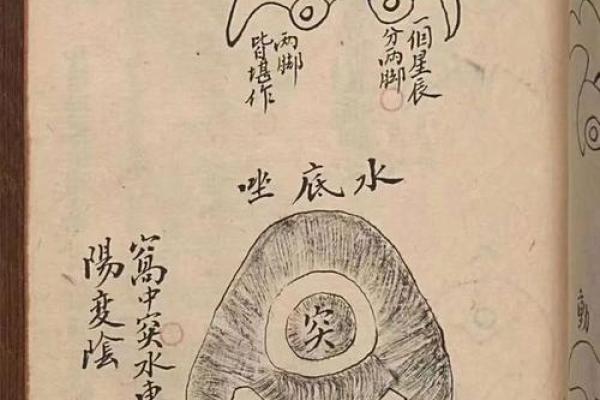 一個星辰
分兩脚
兩脚
皆堪作
水底唑
突
窩中突水
陽変陰
動